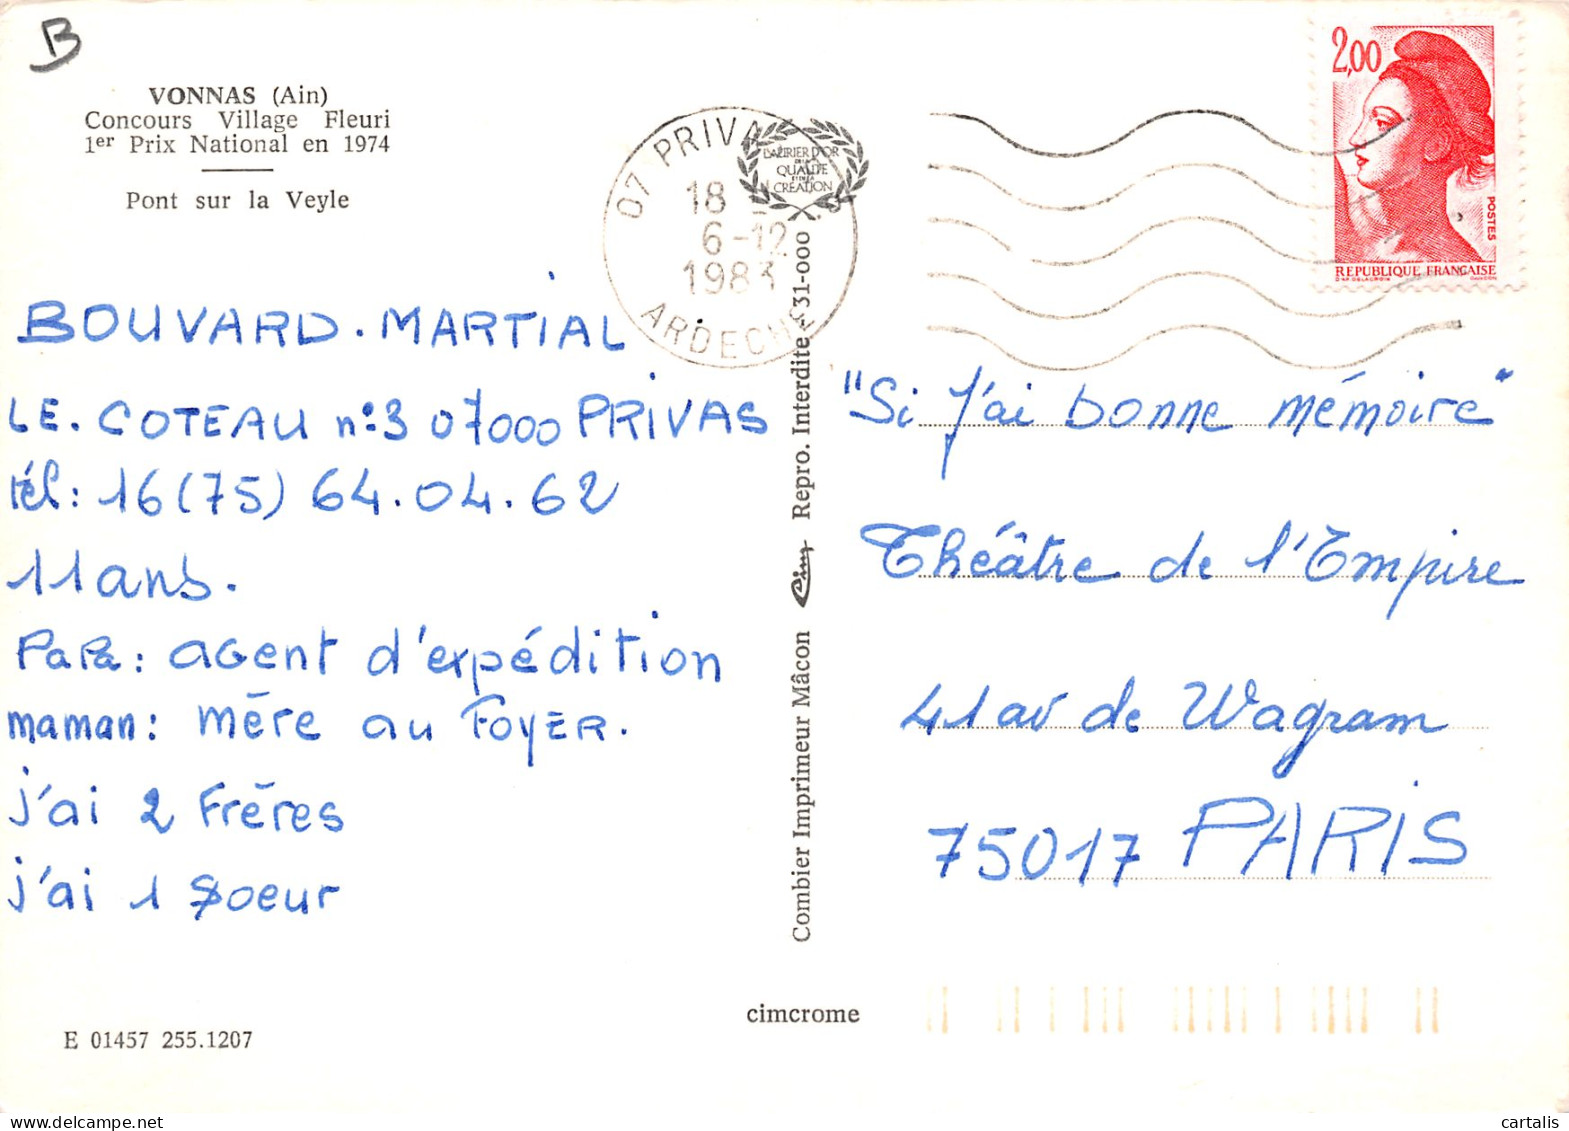 B
VONNAS (Ain)
Concours Village Fleuri
1er Prix National en 1974
Pont sur la Veyle
BOUVARD. MARTIAL
LE. COTEAU n°:3 07000 PRIVAS
tél: 16 (75) 64.04.62
11 ans.
PaPa: agent d'expédition
maman: mère au FoyER.
j'ai 2 Frères
j'ai 1 soeur
E 01457 255.1207
07 PRIVAS
18
6-12
1983
ARDECHE
LAURIER D'OR
DE LA
QUALITE
ET DE LA
CRÉATION
Combier Imprimeur Mâcon Cim Repro. Interdite S 31-000
cimcrome
2,00
POSTES
REPUBLIQUE FRANÇAISE
D'AP. DELACROIX
"Si j'ai bonne mémoire"
Théâtre de l'Empire
41 av de Wagram
75017 PARIS
cartalis